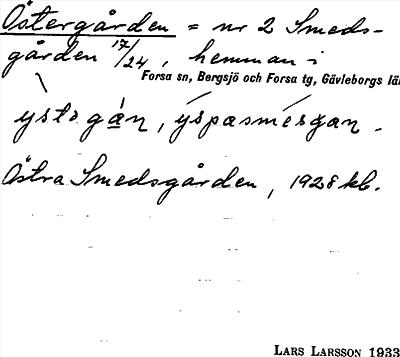 Östergården = nr 2 Smeds-
gården 17/24, hemman i
Forsa sn, Bergsjö och Forsa tg, Gävleborgs lä
ystə gán, yspasmésgan.
Östra Smedsgården, 1928 kb.
LARS LARSSON 1933